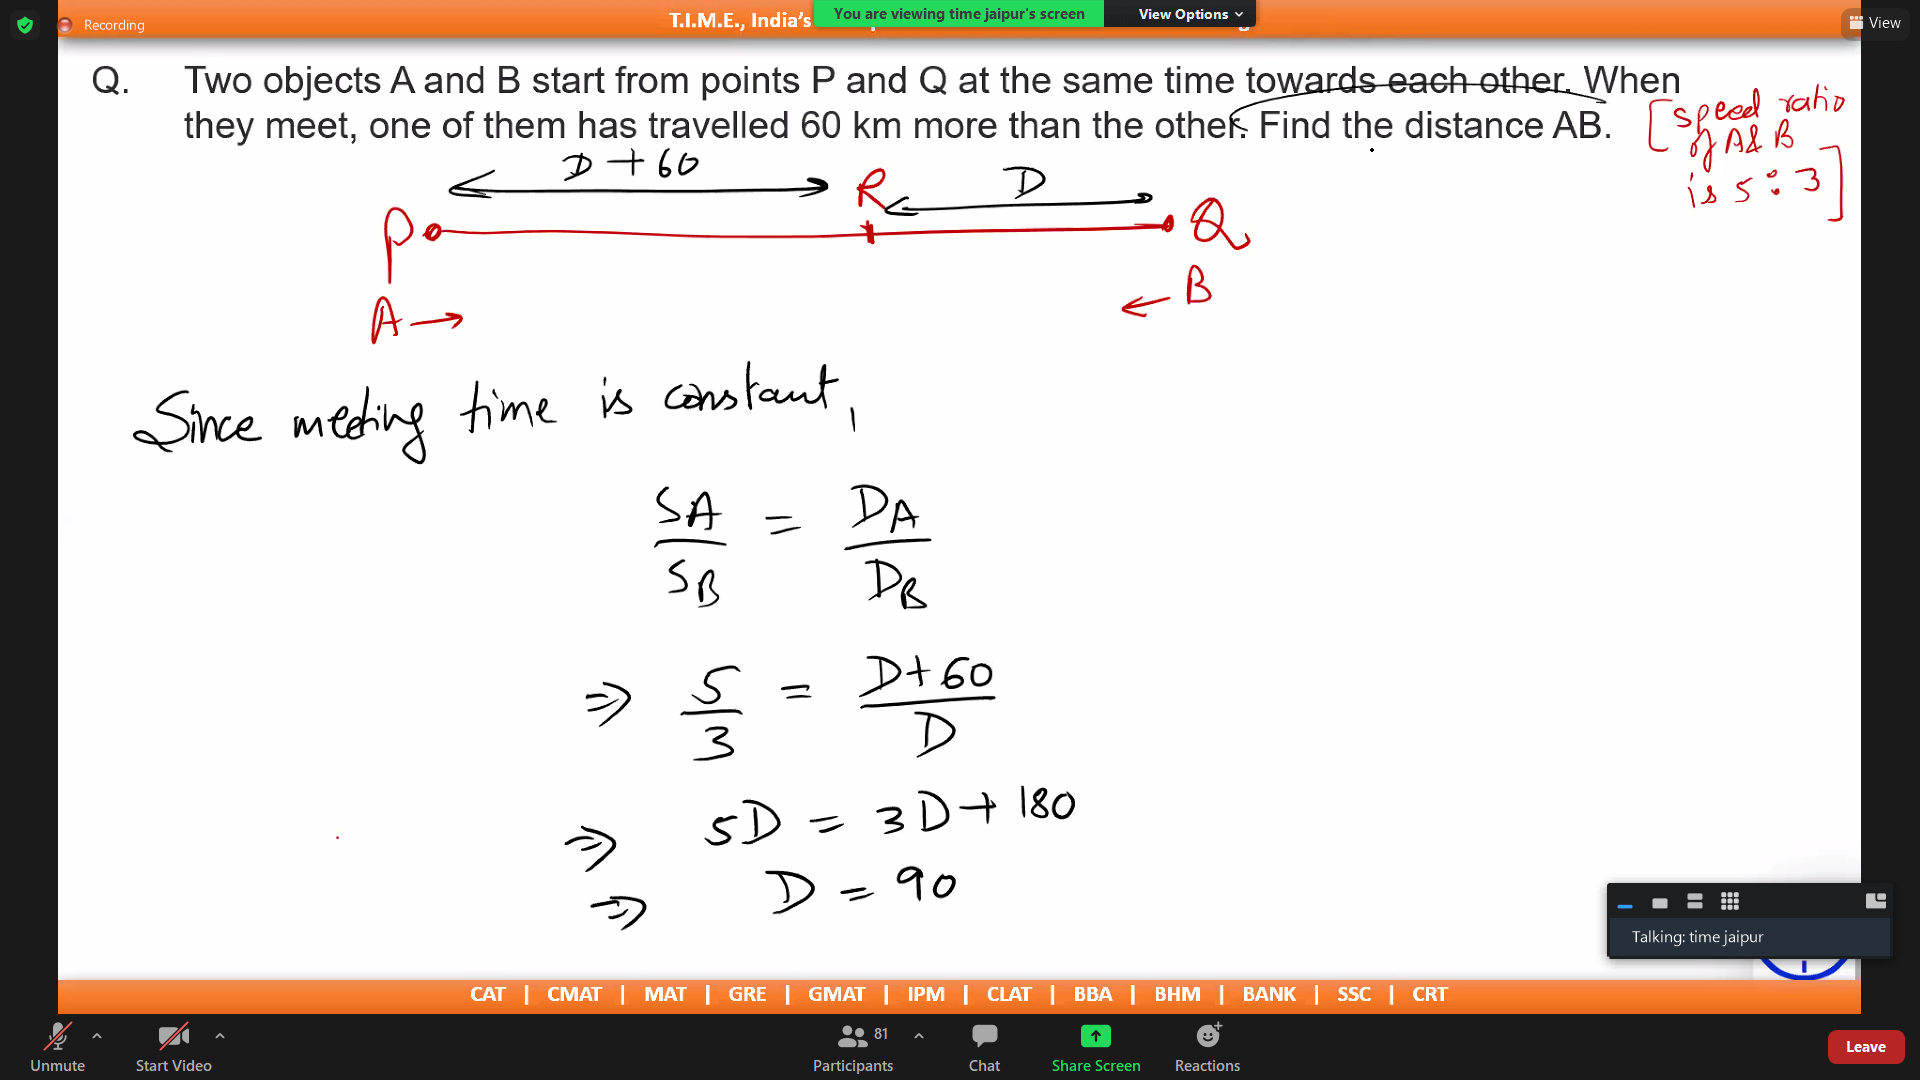 Recording
T.I.M.E., India's
You are viewing time jaipur's screen
View Options
View
Q. Two objects A and B start from points P and Q at the same time towards each other. When
they meet, one of them has travelled 60 km more than the other. Find the distance AB.
[speed ratio
of A & B
is 5 : 3]
D + 60
R
D
P
Q
A →
← B
Since meeting time is constant,
SA/SB = DA/DB
⇒ 5/3 = D+60/D
⇒ 5D = 3D + 180
⇒ D = 90
Talking: time jaipur
CAT | CMAT | MAT | GRE | GMAT | IPM | CLAT | BBA | BHM | BANK | SSC | CRT
Unmute
Start Video
81
Participants
Chat
Share Screen
Reactions
Leave